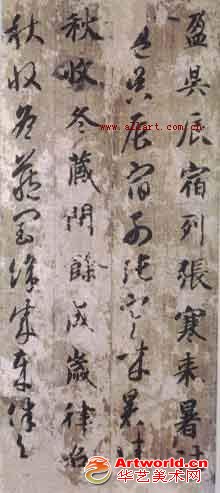 盈昃辰宿列張寒來暑
盈昃辰宿列張寒來暑
秋收冬藏閏餘成歲律召
秋收冬藏閏餘成歲律召
www.allart.com.cn
Artworld.cn
华艺美术网